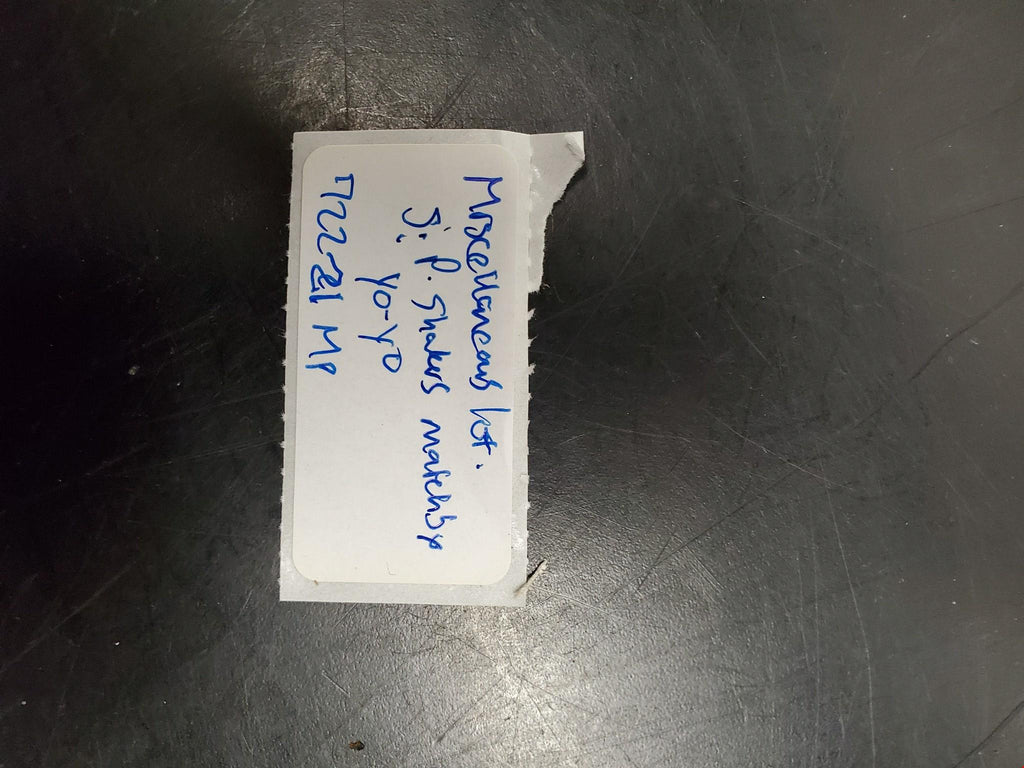 Miscellaneous lot.
S: P. Shakers matchbx
yo-yo
722-21 MP